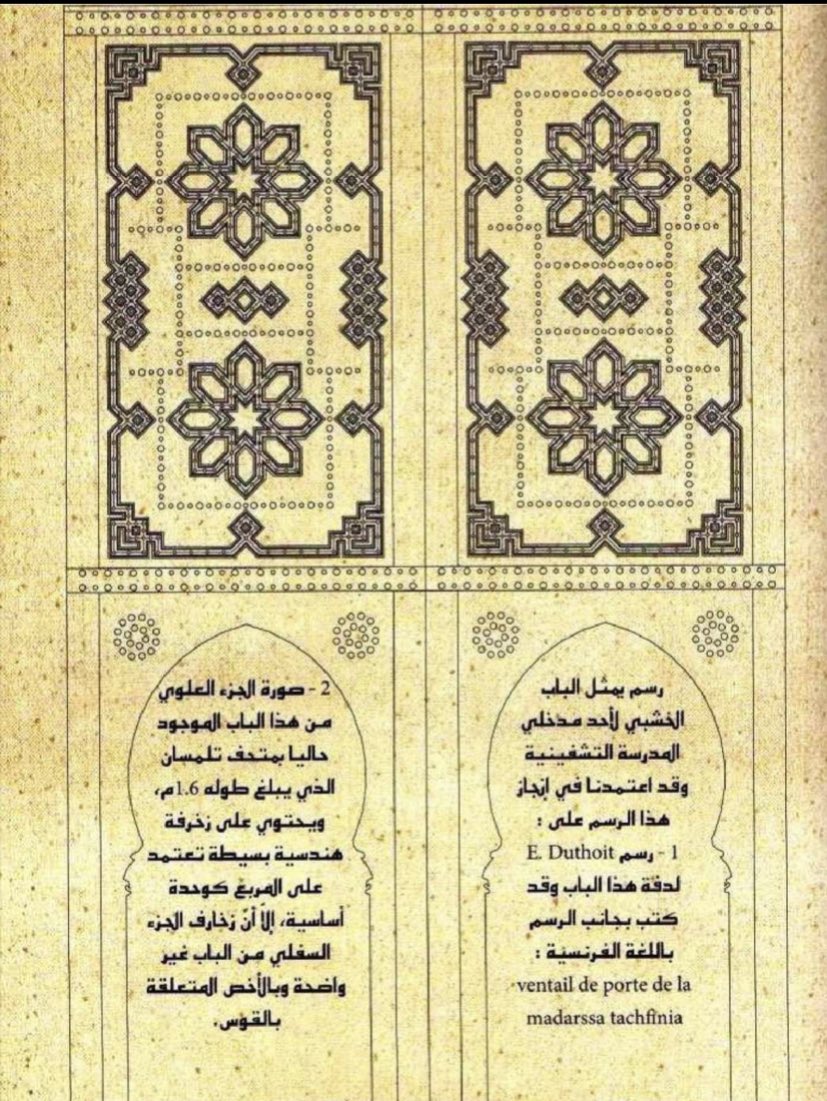 رسم يمثل الباب
الخشبي لأحد مدخلي
المدرسة التشفينية
وقد اعتمدنا في إنجاز
هذا الرسم على :
1 - رسم E. Duthoit
لدفة هذا الباب وقد
كتب بجانب الرسم
باللغة الفرنسية :
ventail de porte de la
madarssa tachfinia
2 - صورة الجزء العلوي
من هذا الباب الموجود
حاليا بمتحف تلمسان
الذي يبلغ طوله 1.6م،
ويحتوي على زخرفة
هندسية بسيطة تعتمد
على المربع كوحدة
أساسية، إلاّ أنّ زخارف الجزء
السفلي من الباب غير
واضحة وبالأخص المتعلقة
بالقوس.